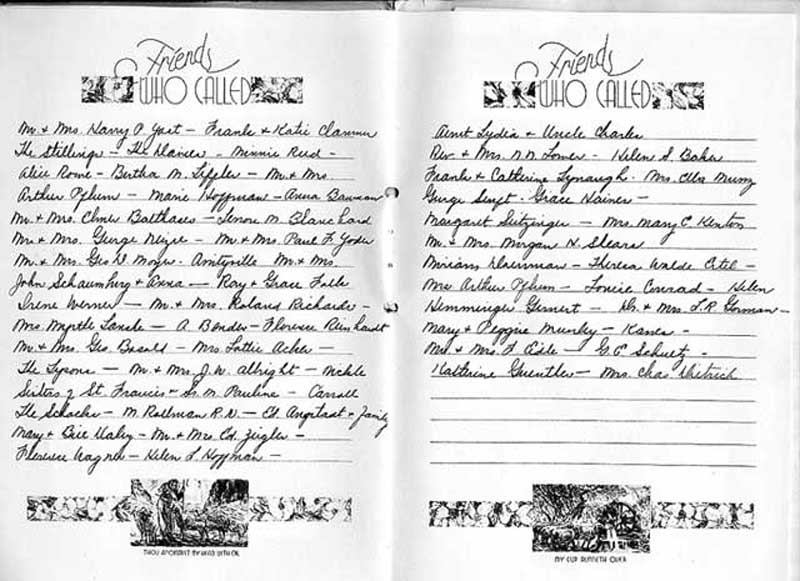 Friends
WHO CALLED
Mr. & Mrs. Harry P. Yost — Frank & Katie Clammer
The Stillings — The — Minnie Reed —
Alice Rowe — Bertha M. Liffeler — Mr. & Mrs
Arthur Pflum — Marie Hoffman — Anna Bauman
Mr. & Mrs. Elmer Balthaser — Lenore M. Blanchard
Mr. & Mrs. George — Mr. & Mrs. Paul F. Yoder
Mr. & Mrs. Geo. W. Moyer. Amityville Mr. & Mrs.
John Schaumburg & Anna — Ray & Grace Falk
Irene Werner — Mr. & Mrs. Roland Richards —
Mrs. Myrtle — A. Bender — Florence Reinhardt
Mr. & Mrs. Geo. — Mrs. Lottie Acker —
The Tysons — Mr. & Mrs. J. W. Albright — Nickle
Sisters of St. Francis & Sr. M. Pauline — Carroll
The — M. Rollman R.N. — Ed. Angstadt & family
Mary & — Mr. & Mrs. Ed. Zeigler —
Florence Wagner — Helen L. Hoffman —
THOU ANOINTEST MY HEAD WITH OIL
Friends
WHO CALLED
Aunt Lydia & Uncle Charles
Rev. & Mrs. — Helen S. Baker
Frank & Catherine Lynaugh. Mrs. Ella
George — Grace Hainer —
Margaret Seitzinger — Mrs. Mary C. Kenton
Mr. & Mrs. Morgan H. Stears
Miriam — Theresa Walde Ertel —
Mrs Arthur Pflum — Louise Conrad — Helen
Hemminger Gernert — Dr. & Mrs. L. R. Gorman —
Mary & Peggie — Kanes —
Mr. & Mrs. F. — G. E. Schuetz —
Katherine Guentler — Mrs. Chas. Dietrich
MY CUP RUNNETH OVER